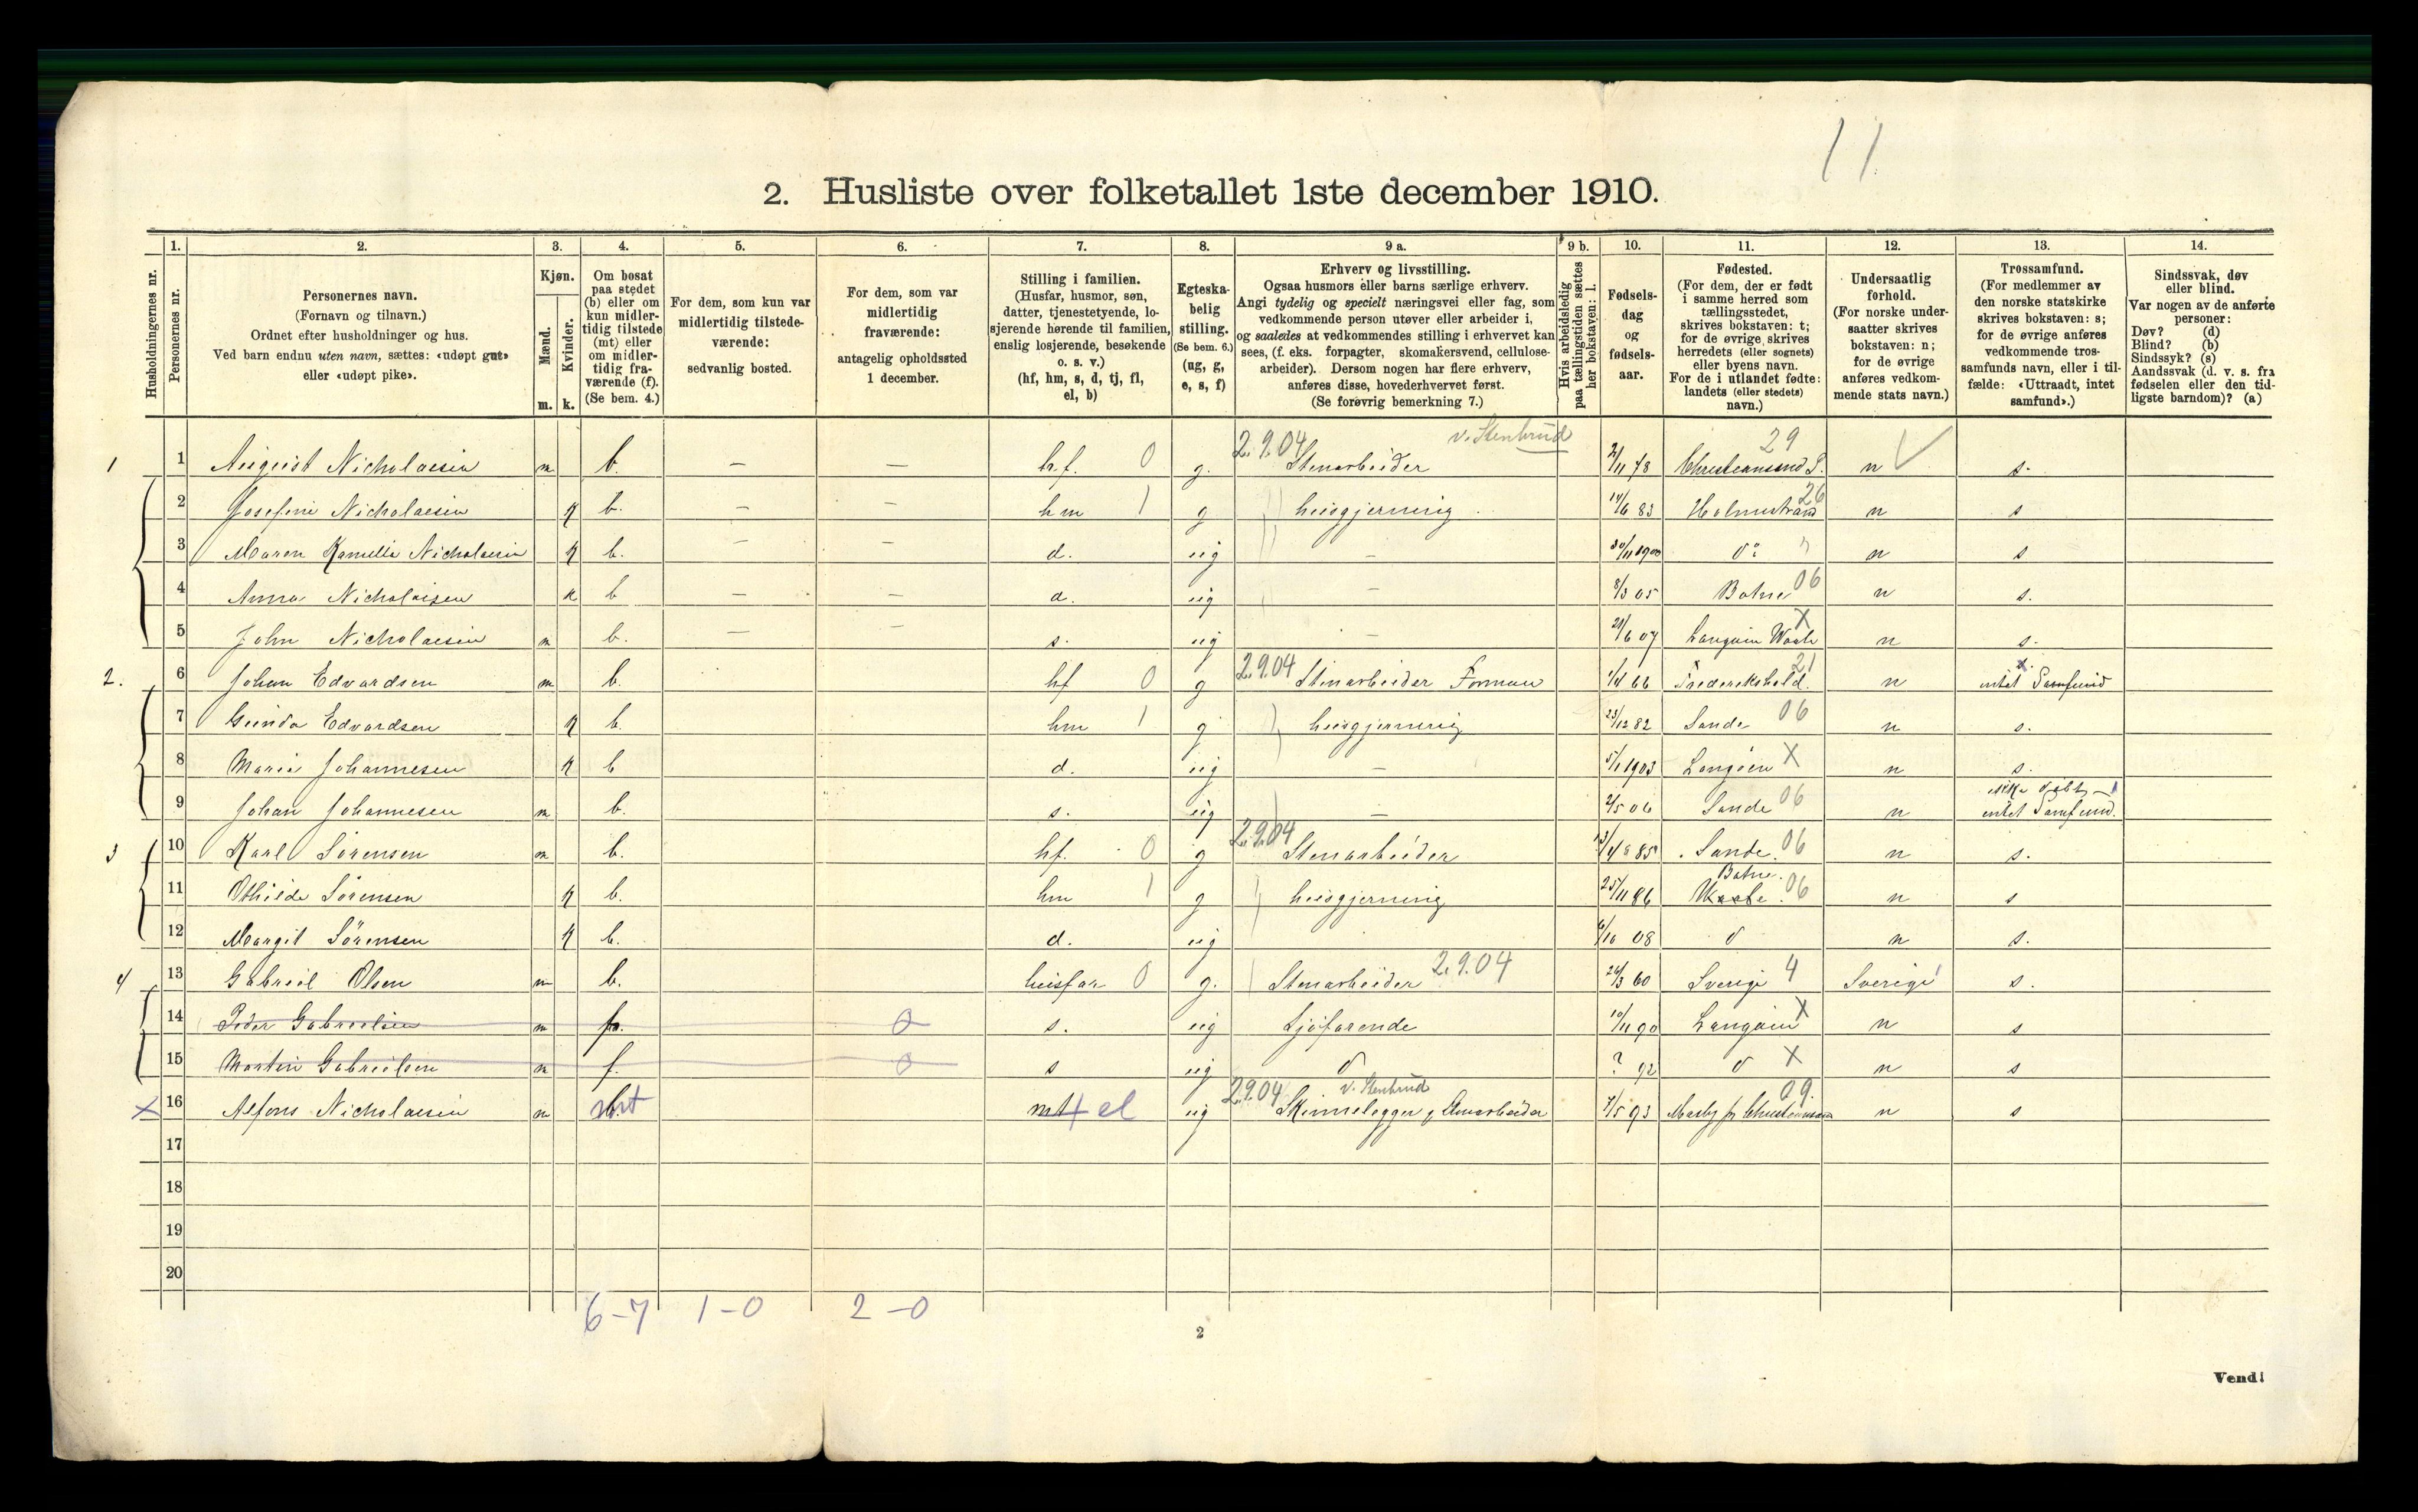 11
2. Husliste over folketallet 1ste december 1910.
Husholdningernes nr.
1. Personernes nr.
2. Personernes navn.
(Fornavn og tilnavn.)
Ordnet efter husholdninger og hus.
Ved barn endnu uten navn, sættes: «udøpt gut»
eller «udøpt pike».
3. Kjøn.
Mænd. m.
Kvinder. k.
4. Om bosat
paa stedet
(b) eller om
kun midler-
tidig tilstede
(mt) eller
om midler-
tidig fra-
værende (f).
(Se bem. 4.)
5. For dem, som kun var
midlertidig tilstede-
værende:
sedvanlig bosted.
6. For dem, som var
midlertidig
fraværende:
antagelig opholdssted
1 december.
7. Stilling i familien.
(Husfar, husmor, søn,
datter, tjenestetyende, lo-
sjerende hørende til familien,
enslig losjerende, besøkende
o. s. v.)
(hf, hm, s, d, tj, fl,
el, b)
8. Egteska-
belig
stilling.
(Se bem. 6.)
(ug, g,
e, s, f)
9 a. Erhverv og livsstilling.
Ogsaa husmors eller barns særlige erhverv.
Angi tydelig og specielt næringsvei eller fag, som
vedkommende person utøver eller arbeider i,
og saaledes at vedkommendes stilling i erhvervet kan
sees, (f. eks. forpagter, skomakersvend, cellulose-
arbeider). Dersom nogen har flere erhverv,
anføres disse, hovederhvervet først.
(Se forøvrig bemerkning 7.)
9 b. Hvis arbeidsledig
paa tællingstiden sættes
her bokstaven: l.
10. Fødsels-
dag
og
fødsels-
aar.
11. Fødested.
(For dem, der er født
i samme herred som
tællingsstedet,
skrives bokstaven: t;
for de øvrige skrives
herredets (eller sognets)
eller byens navn.
For de i utlandet fødte:
landets (eller stedets)
navn.)
12. Undersaatlig
forhold.
(For norske under-
saatter skrives
bokstaven: n;
for de øvrige
anføres vedkom-
mende stats navn.)
13. Trossamfund.
(For medlemmer av
den norske statskirke
skrives bokstaven: s;
for de øvrige anføres
vedkommende tros-
samfunds navn, eller i til-
fælde: «Uttraadt, intet
samfund».)
14. Sindssvak, døv
eller blind.
Var nogen av de anførte
personer:
Døv? (d)
Blind? (b)
Sindssyk? (s)
Aandssvak (d. v. s. fra
fødselen eller den tid-
ligste barndom)? (a)
2.9.04 v. Stenbrud 29
1 1 August Nicholaisen m b. – – h.f. 0 g. Stenarbeider 2/11 78 Christiansand S. n s.
2 Josefine Nicholaisen K b. – – hm 1 g huisgjerning 14/6 83 Holmestrand 26 n s
3 Maren Kamilla Nicholaisen K b. – – d. uig – 30/11 1900 do n s
4 Anna Nicholaisen K b – – d. uig – 8/3 05 Botne 06 n s.
5 John Nicholaisen m b. – – s. uig – 21/6 07 Langøien X n s.
2. 6 Johan Edvardsen m b. hf 0 g 2.9.04 Stenarbeider Forman 1/4 66 Frederikshald. 21 n intet Samfund
7 Gunda Edvardsen K b. hm 1 g huisgjerning 23/12 82 Sande 06 n s.
8 Maria Johannesen K b d. uig – 5/1 1903 Langøien X n s.
9 Johan Johannesen m b. s. uig – 2/5 06 Sande 06 n ikke døbt intet Samfund.
3 10 Karl Sørensen m b. hf. 0 g 2.9.04 Stenarbeider 85 Sande. 06 n s.
11 Othilde Sørensen K b. hm 1 g huisgjerning 25/11 86 Botne. 06 n s
12 Margit Sørensen K b. d. uig 6/10 08 d n s.
4 13 Gabriel Olsen m b. huisfar 0 g. Stenarbeider 2.9.04 24/3 60 Sverige 4 Sverige s.
14 Peder Gabrielsen m f. 0 s. uig Sjøfarende 10/11 90 Langøien X n s
15 Martin Gabrielsen m f. 0 s uig d ? 92 d X n s
X 16 Alfons Nicholaisen m mt el uig 2.9.04 v. Stenbrud Skinnelegger 7/5 93 09 n s
17
18
19
20
6–7 1–0 2–0
2
Vend!